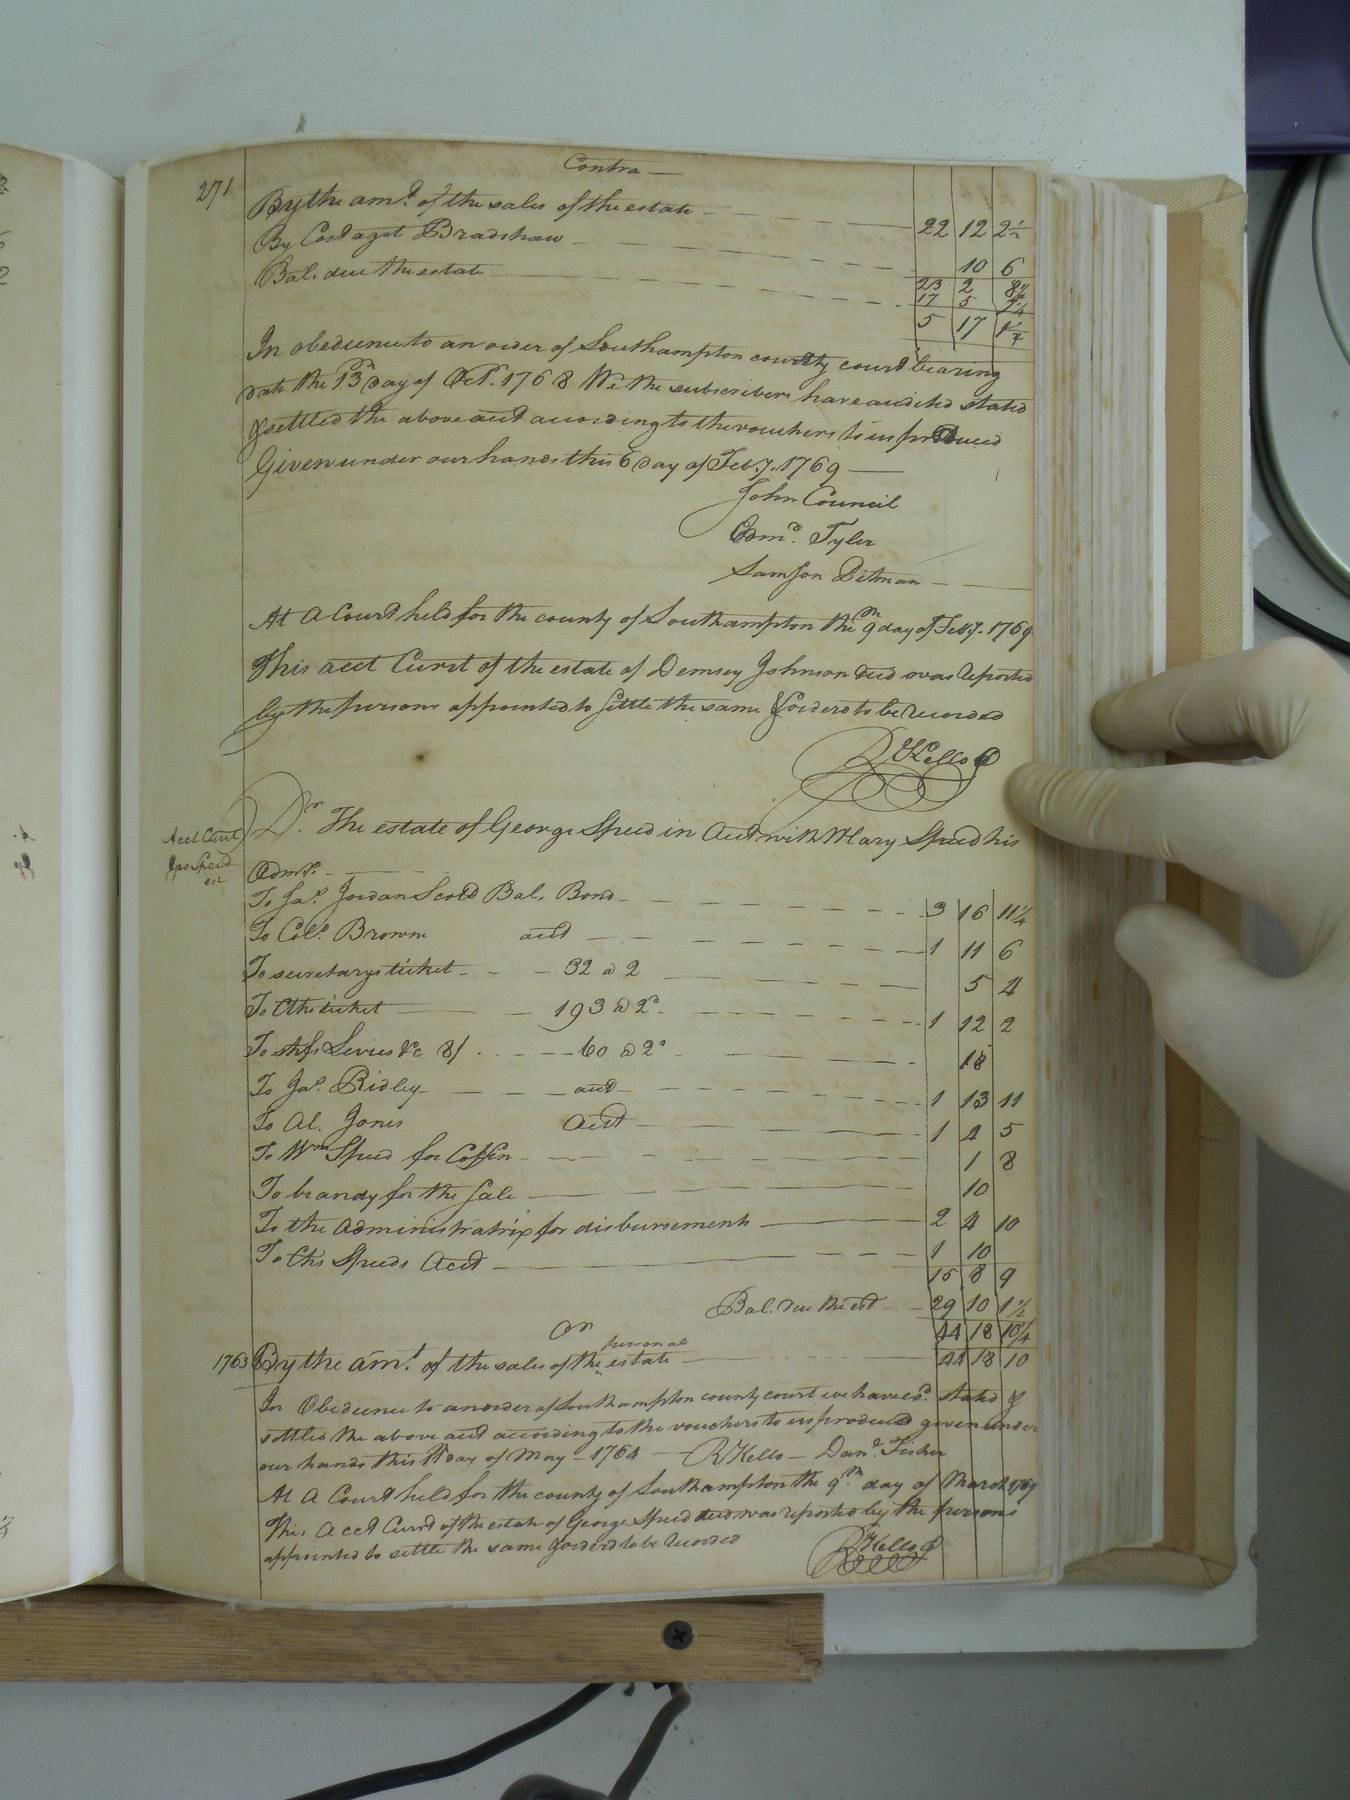 271
Contra —
By the amt. of the sales of the estate — 22 12 2½
By Cost agst Bradshaw — 10 6
23 2 8½
Bal. due the estate — 17 5 7¼
5 17 1¼
In obedience to an order of Southampton county court bearing
date the 13th day of Octr. 1768 We the subscribers have audited stated
& settled the above acct according to the vouchers to us produced
Given under our hands this 6 day of Feby. 1769 —
John Council
Edmd. Tyler
Samson Pitman —
At a Court held for the county of Southampton the 9th day of Feby. 1769
This acct Currt of the estate of Demsey Johnson decd was reported
by the persons appointed to settle the same & orderd to be recorded
R Kello
Acct Currt
Geo Speed
est
Dr. The estate of George Speed in Acct with Mary Speed his
Admx. —
To Jas. Jordan Scott Bal. Bond — 3 16 11¼
To Colo. Browne acct — 1 11 6
To secretarys ticket — 32 a 2 — 5 4
To Clks ticket — 193 @ 2d — 1 12 2
To shfs Levies &c 8/ — 60 @ 2d — 18
To Jas. Ridley — acct — 1 13 11
To Al. Jones Acct — 1 4 5
To Wm Speed for Coffin — 1 8
To brandy for the sale — 10
To the administratrix for disbursements — 2 4 10
To Chs Speeds Acct — 1 10
15 8 9
Bal. due the est — 29 10 1½
44 18 10¼
Cr
1763 By the amt. of the sales of the personal estate — 44 18 10
In Obedience to an order of Southampton county court we have stated &
settled the above acct according to the vouchers to us produced given under
our hands this day of May — 1764 — R Kello — Danl. Fisher
At a Court held for the county of Southampton the 9th. day of March 1769
This Acct Currt of the estate of George Speed decd was reported by the persons
appointed to settle the same & orderd to be recorded
R Kello